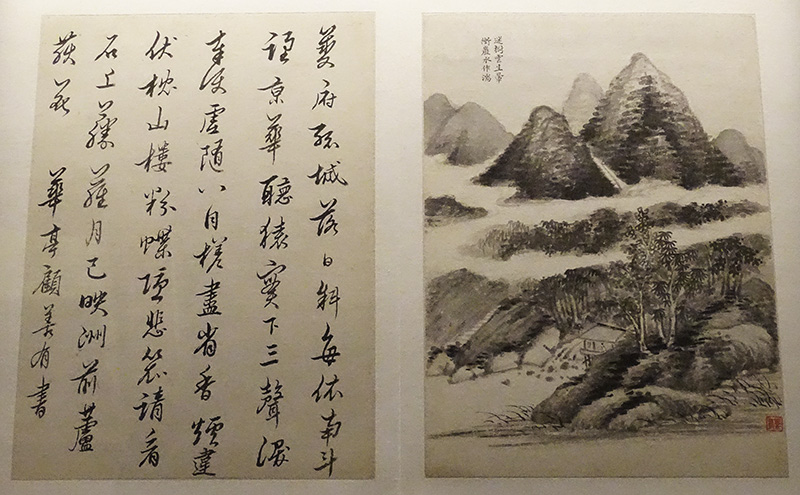 夔府孤城落日斜每依南斗
望京華聽猿實下三聲淚
奉使虛隨八月槎畫省香爐違
伏枕山樓粉堞隱悲笳請看
石上藤蘿月已映洲前蘆
荻花 華亭顧善有書